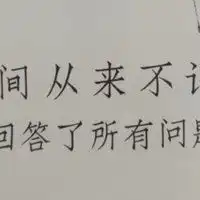 间从来不
回答了所有问题